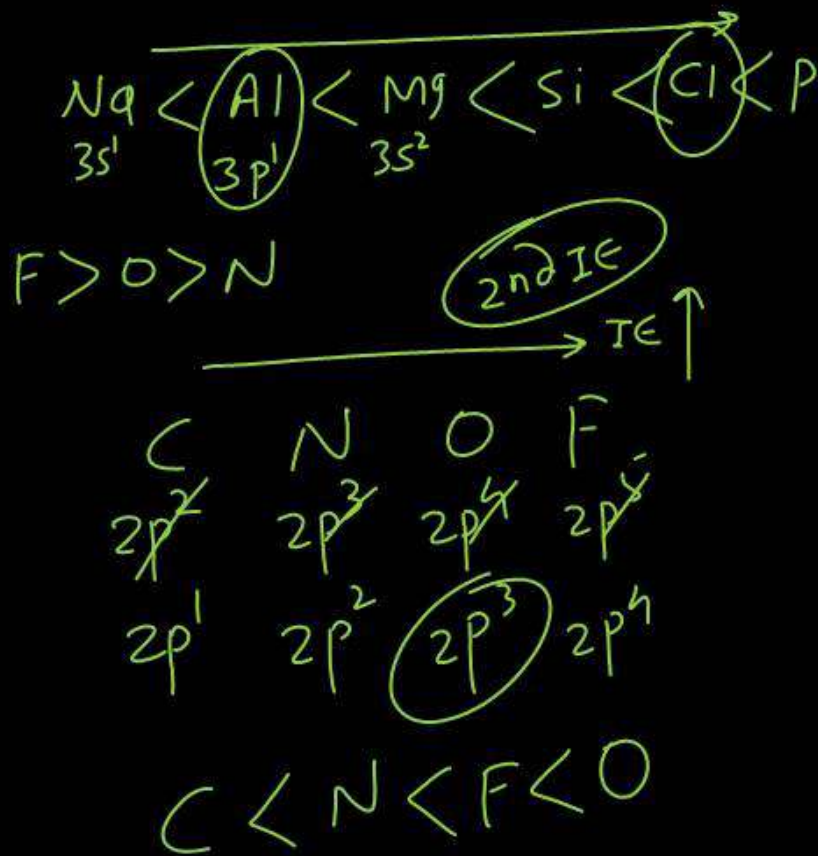 Na < Al < Mg < Si < Cl < P
3s¹ 3p¹ 3s²
F > O > N
2nd IE
IE ↑
C N O F
2p² 2p³ 2p⁴ 2p⁵
2p¹ 2p² 2p³ 2p⁴
C < N < F < O